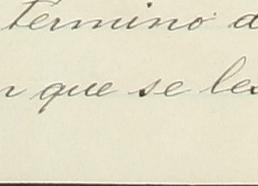 término d
n que se les